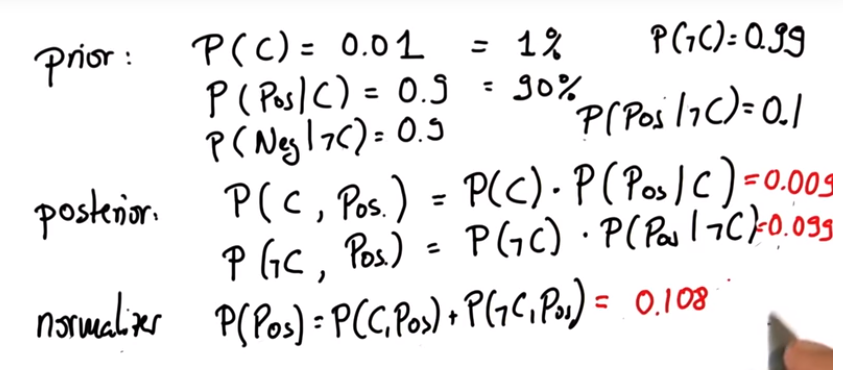 prior: P(C) = 0.01 = 1% P(¬C) = 0.99
P(Pos|C) = 0.9 = 90%
P(Pos|¬C) = 0.1
P(Neg|¬C) = 0.9
posterior: P(C, Pos.) = P(C) · P(Pos|C) = 0.009
P(¬C, Pos.) = P(¬C) · P(Pos|¬C) = 0.099
normalizer P(Pos) = P(C,Pos) + P(¬C,Pos) = 0.108